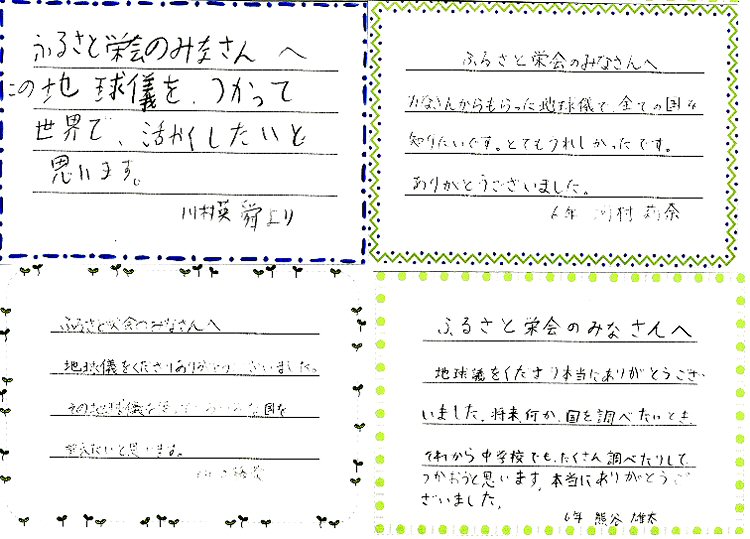 ふるさと栄会のみなさんへ
この地球儀を、つかって
世界で、活やくしたいと
思います。
川村英舜より
ふるさと栄会のみなさんへ
みなさんからもらった地球儀で、全ての国を
知りたいです。とてもうれしかったです。
ありがとうございました。
6年 川村 莉奈
ふるさと栄会のみなさんへ
地球儀をくださりありがとうございました。
その地球儀を
国を
思います。
ふるさと栄会のみなさんへ
地球儀をくださり本当にありがとうござ
いました。将来、何か、国を調べたいとき、
それから中学校でも、たくさん調べたりして、
つかおうと思います。本当にありがとうご
ざいました。
6年 熊谷 雄太